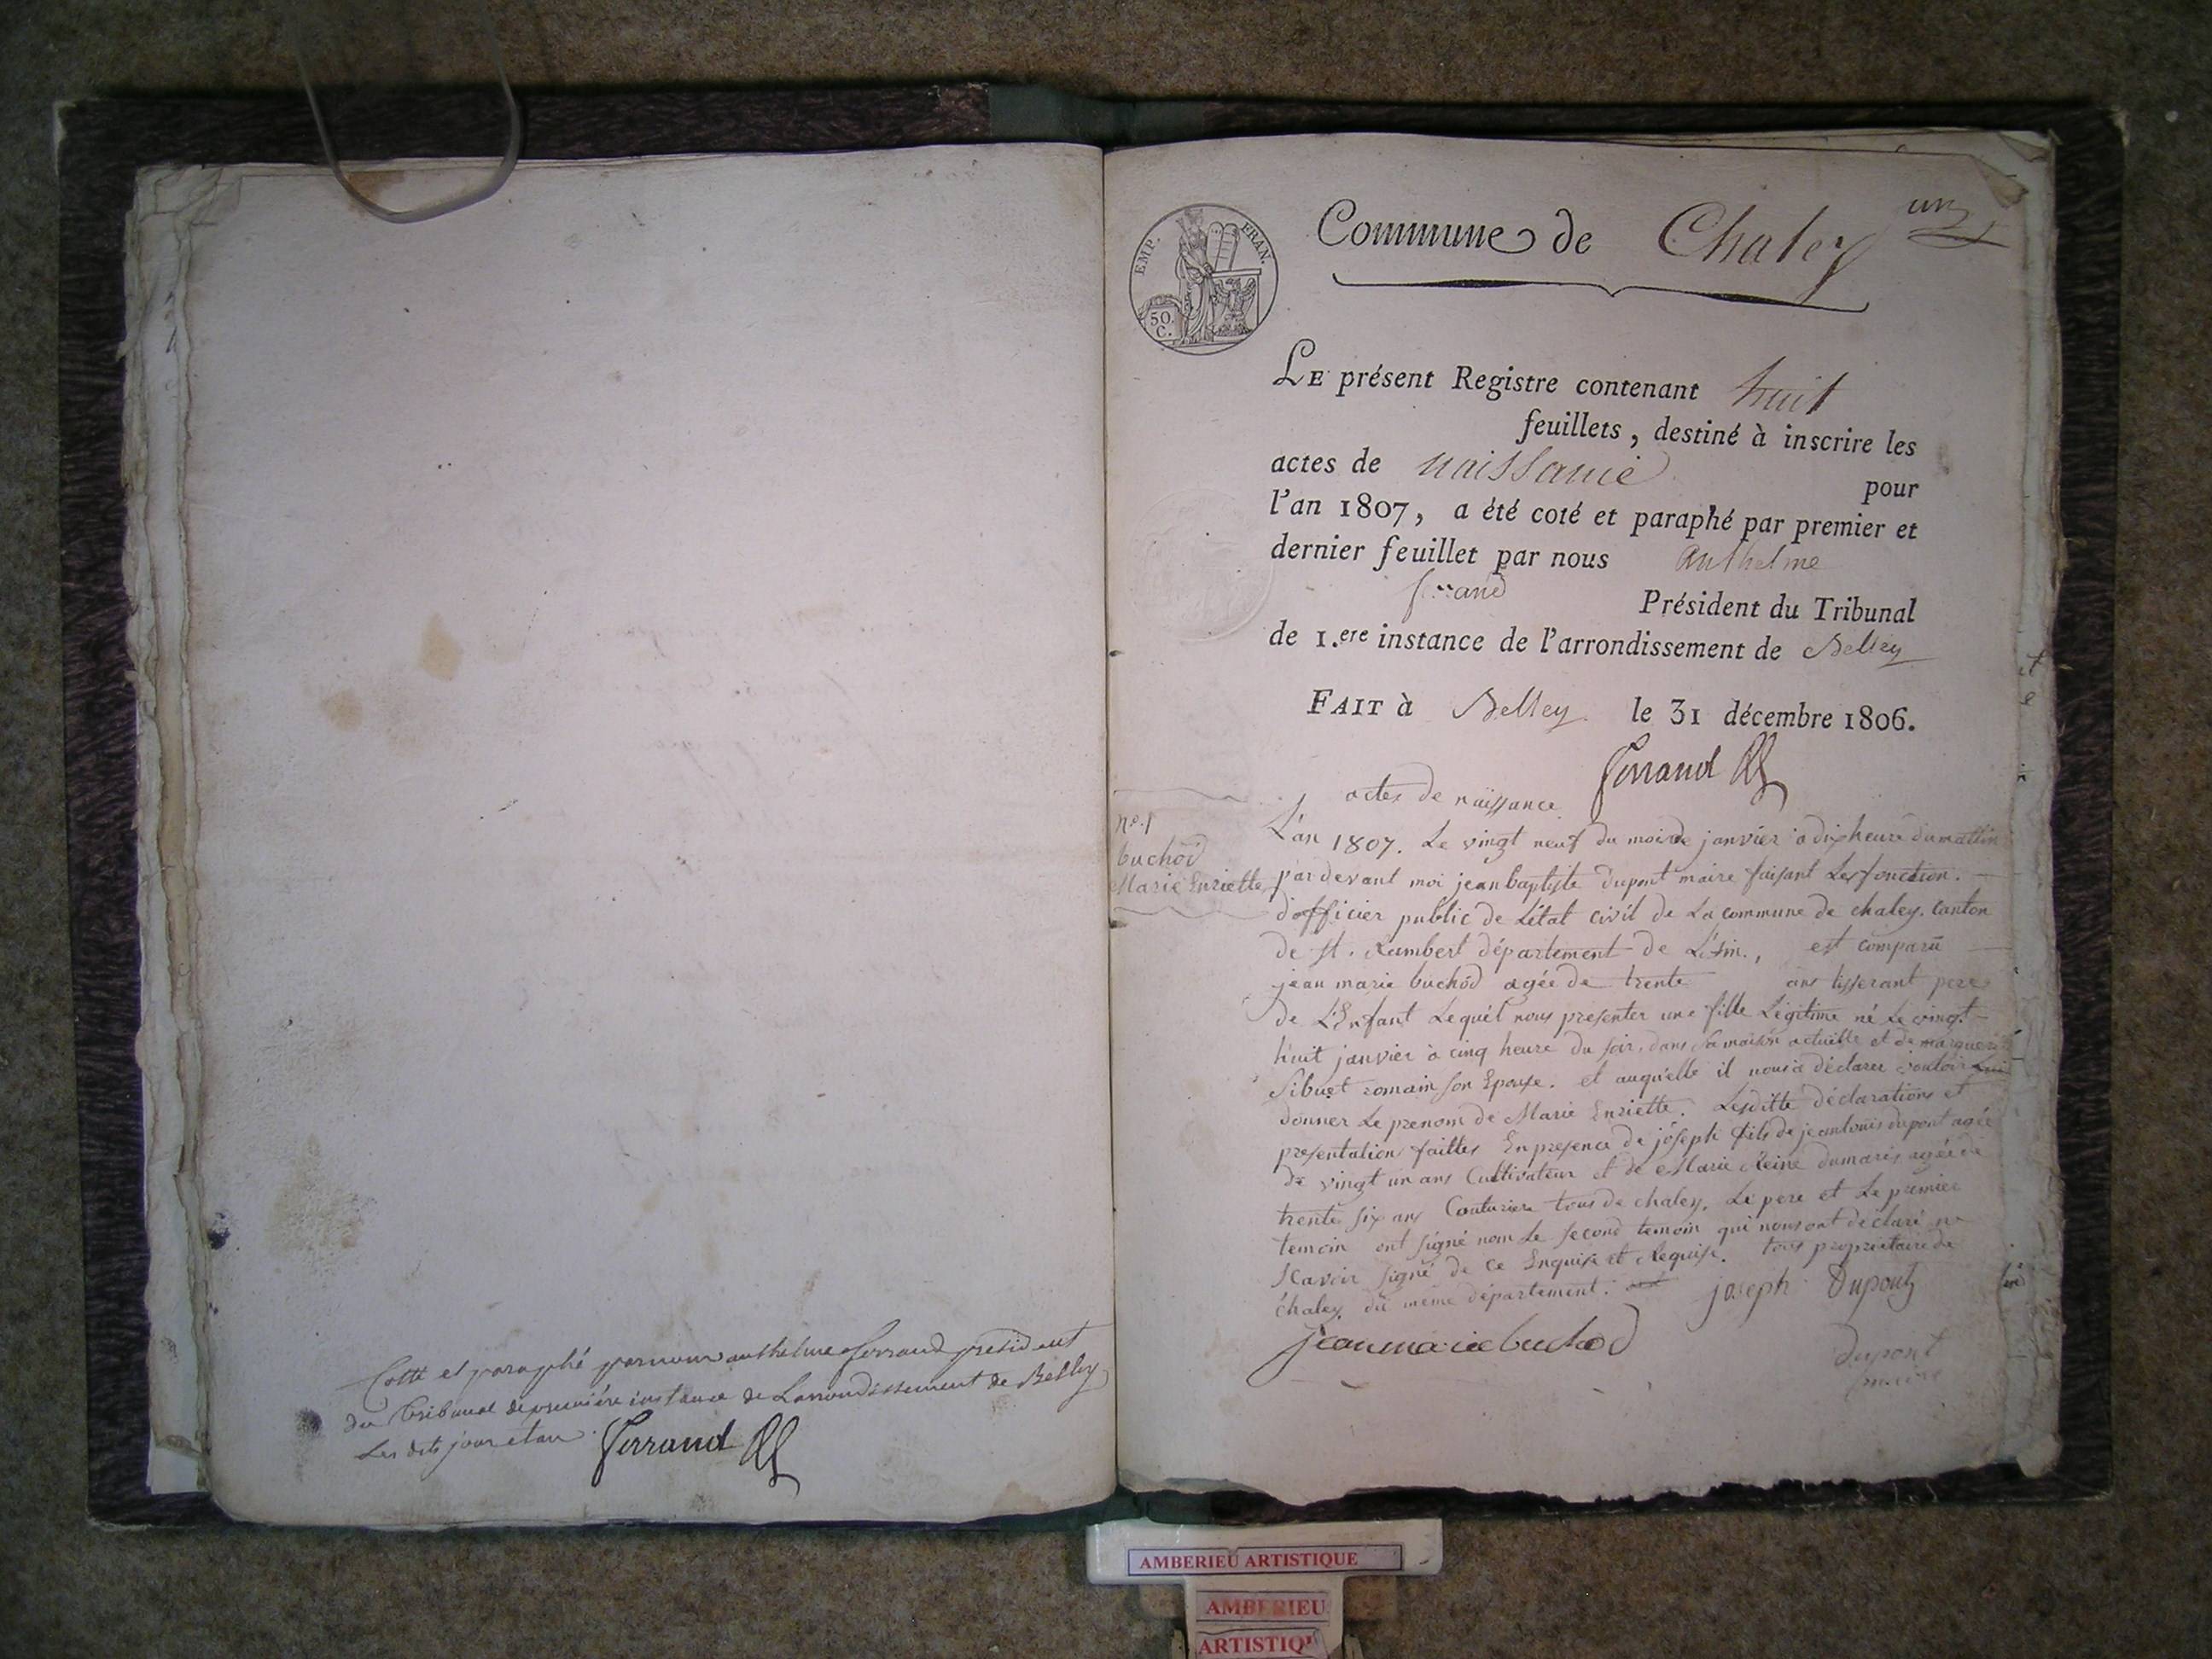 Cotté et paraphé par nous anthelme ferrand président
du Tribunal de première instance de L'arrondissement de Belley
Les dits jour et an. Ferrand
un
EMP. FRAN.
50 C.
Commune de Chaley
LE présent Registre contenant huit
feuillets, destiné à inscrire les
actes de naissance pour
l'an 1807, a été coté et paraphé par premier et
dernier feuillet par nous Anthelme
ferrand Président du Tribunal
de 1.ere instance de l'arrondissement de Belley
FAIT à Belley le 31 décembre 1806.
Ferrand
actes de naissance
no. 1
buchod
Marie Enriette
L'an 1807. Le vingt neuf du mois de janvier a dix heure du mattin
pardevant moi jean baptiste dupont maire faisant Les fonction.
d'officier public de L'état civil de La commune de chaley. Canton
de St. Rambert département de L'Ain., est comparu
jean marie buchod agée de trente ans tisserant pere
de L'Enfant Lequel nous presenter une fille Légitime né Le vingt
huit janvier à cinq heure du soir, dans sa maison actuelle et de marguerite
Sibuet romain son Epouse. et auquelle il nous a déclarer vouloir Lui
donner Le prenom de Marie Enriette. Lesditte déclarations et
presentation faittes En presence de joseph fils de jean louis dupont agée
de vingt un ans Cultivateur et de Marie Reine dumarès agée de
trente six ans Couturiere tous de chaley. Le pere et Le premier
temoin ont signé nom Le second temoin qui nous ont déclaré ne
scavoir signé de ce Enquise et Requise. tous proprietaire de
chaley du meme département.
joseph Dupont
jean marie buchod
dupont
maire
AMBERIEU ARTISTIQUE
AMBERIEU
ARTISTIQU